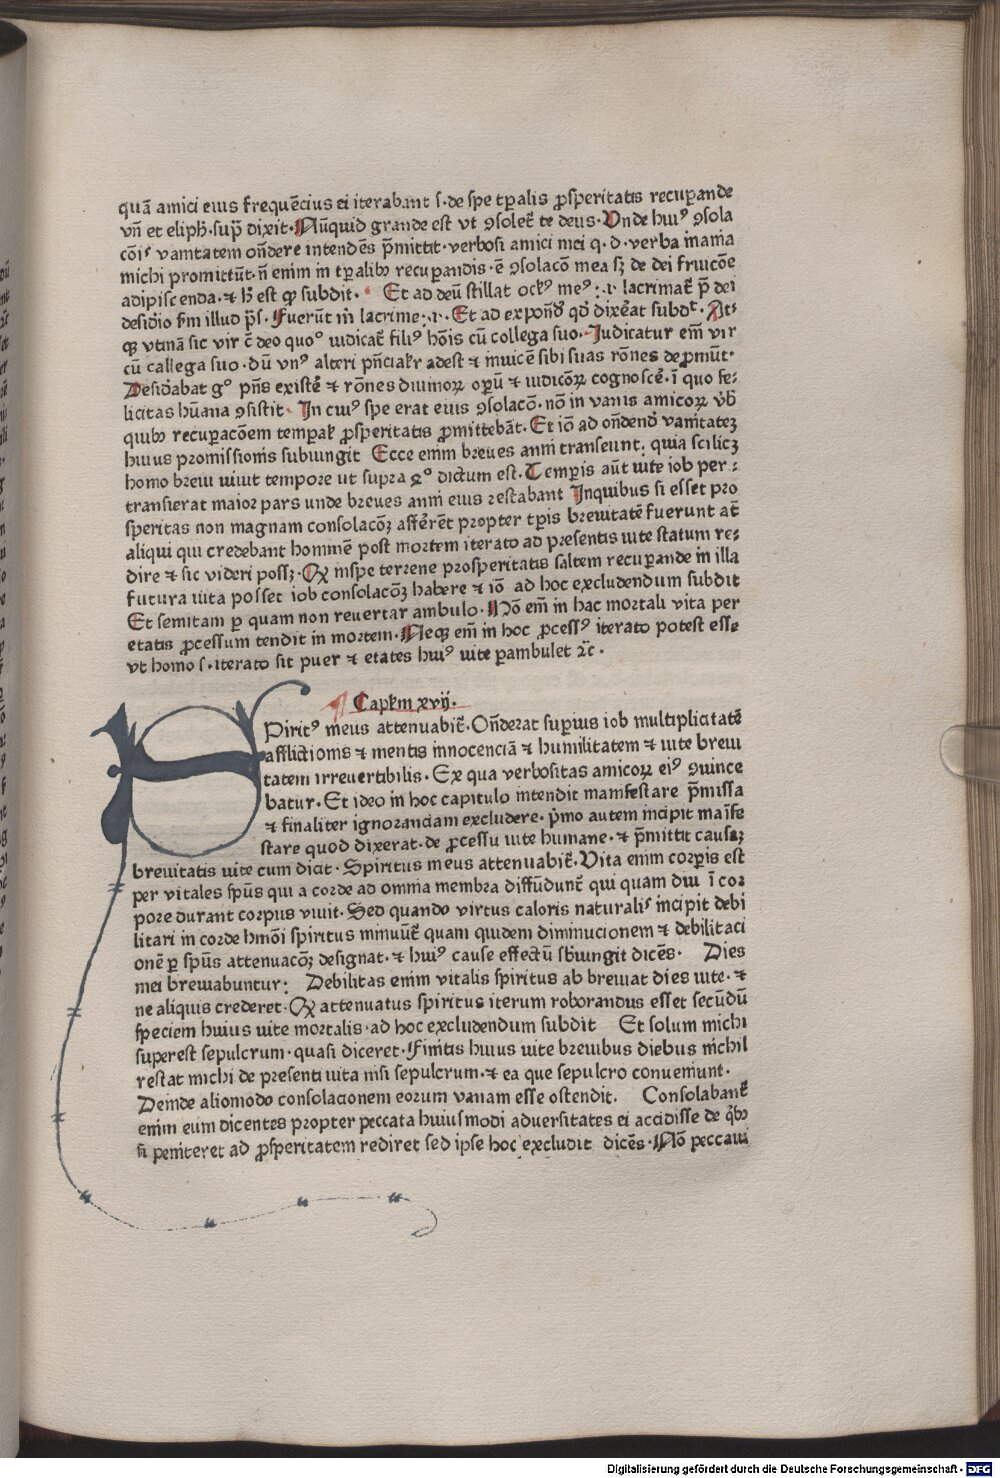 quā amici eius frequēcius ei iterabant s. de spe tꝑalis ꝓsperitatis recuꝑande
vn̄ et eliph̄. sup̄ dixit. Nūquid grande est vt ꝯsolet̄ te deus. Vnde huiꝰ ꝯsola
cōis vanitatem on̄dere intendēs p̄mittit. verbosi amici mei q. d. verba inania
michi promittūt. n̄ enim in tꝑalibꝫ recuꝑandis. ē ꝯsolacō mea sꝫ de dei fruicōe
adipiscenda. ⁊ h̄ est qꝫ subdit. Et ad deū stillat oclꝰ meꝰ :.i. lacrimat̄ p̄ dei
desid̄io s̄m illud p̄s. Fuerūt m̄ lacrime:.i. Et ad expon̄dꝰ qd̄ dixēat subdᵗ. At⸗
qꝫ vtinā sic vir c̄ deo quoꝰ iudicat̄ filiꝰ hōis cū collega suo. Judicatur em̄ vir
cū callega suo. dū vnꝰ alteri p̄ncialr̄ adest ⁊ inuicē sibi suas rōnes depromūt.
Desid̄abat gᵒ pn̄s existē ⁊ rōnes diuinoꝝ opeꝝ ⁊ iudicōꝝ cognoscē. ī quo fe⸗
licitas hūana ꝯsistit. In cuiꝰ spe erat eius ꝯsolacō. nō in vanis amicoꝝ v̄b̄
quibꝫ recuꝑacōem temꝑal̄ ꝓsperitatis ꝓmittebāt. Et iō ad on̄dend̄ vanitateꝫ
huius promissionis subiungit Ecce enim breues anni transeunt. quia scilicꝫ
homo breui viuit tempore ut supra ꝛᵒ dictum est. Temꝑis aūt uite iob per⸗
transierat maior pars unde breues anni eius restabant Inquibus si esset pro
speritas non magnam consolacōꝫ afferēt propter tꝑis breuitatē fuerunt at̄
aliqui qui credebant hominē post mortem iterato ad presentis uite statum re⸗
dire ⁊ sic videri possꝫ. Qꝫ inspe terrene prosperitatis saltem recuꝑande in illa
futura uita posset iob consolacōꝫ habere ⁊ iō ad hoc excludendum subdit
Et semitam ꝑ quam non reuertar ambulo. Nō em̄ in hac mortali vita per
etatis ꝓcessum tendit in mortem. Neqꝫ em̄ in hoc ꝓcessꝰ iterato potest esse
vt homo s. iterato sit puer ⁊ etates huiꝰ uite ꝑambulet ⁊c̄.
¶ Capl̄m xvij.
Spiritꝰ meus attenuabit̄. On̄derat suꝑius iob multiplicitatē
afflictionis ⁊ mentis innocenciā ⁊ humilitatem ⁊ uite breui
tatem irreuertibilis. Ex qua verbositas amicoꝝ eiꝰ ꝯuince
batur. Et ideo in hoc capitulo intendit manifestare p̄missa
⁊ finaliter ignoranciam excludere. p̄mo autem incipit maīfe
stare quod dixerat. de ꝓcessu uite humane. ⁊ p̄mittit causaꝫ
breuitatis uite cum dicit. Spiritus meus attenuabit̄. Vita enim corꝑis est
per vitales sp̄us qui a corde ad omnia membra diffūdunt̄ qui quam diu ī cor
pore durant corpus viuit. Sed quando virtus caloris naturalis incipit debi
litari in corde hmōi spiritus minuūt̄ quam quidem diminucionem ⁊ debilitaci
onē ꝑ sp̄us attenuacōꝫ designat. ⁊ huiꝰ cause effectū sb̄iungit dicēs. Dies
mei breuiabuntur: Debilitas enim vitalis spiritus ab breuiat dies uite. ⁊
ne aliquis crederet. Qꝫ attenuatus spiritus iterum roborandus esset secūdū
speciem huius uite mortalis. ad hoc excludendum subdit Et solum michi
superest sepulcrum. quasi diceret. Finitis huius uite breuibus diebus nichil
restat michi de presenti uita nisi sepulcrum. ⁊ ea que sepulcro conueniunt.
Deinde aliomodo consolacionem eorum vanam esse ostendit. Consolabant̄
enim eum dicentes propter peccata huiusmodi aduersitates ei accidisse de qͥbꝫ
si peniteret ad ꝓsperitatem rediret sed ipse hoc excludit dicēs. Nō peccaui
Digitalisierung gefördert durch die Deutsche Forschungsgemeinschaft - DFG